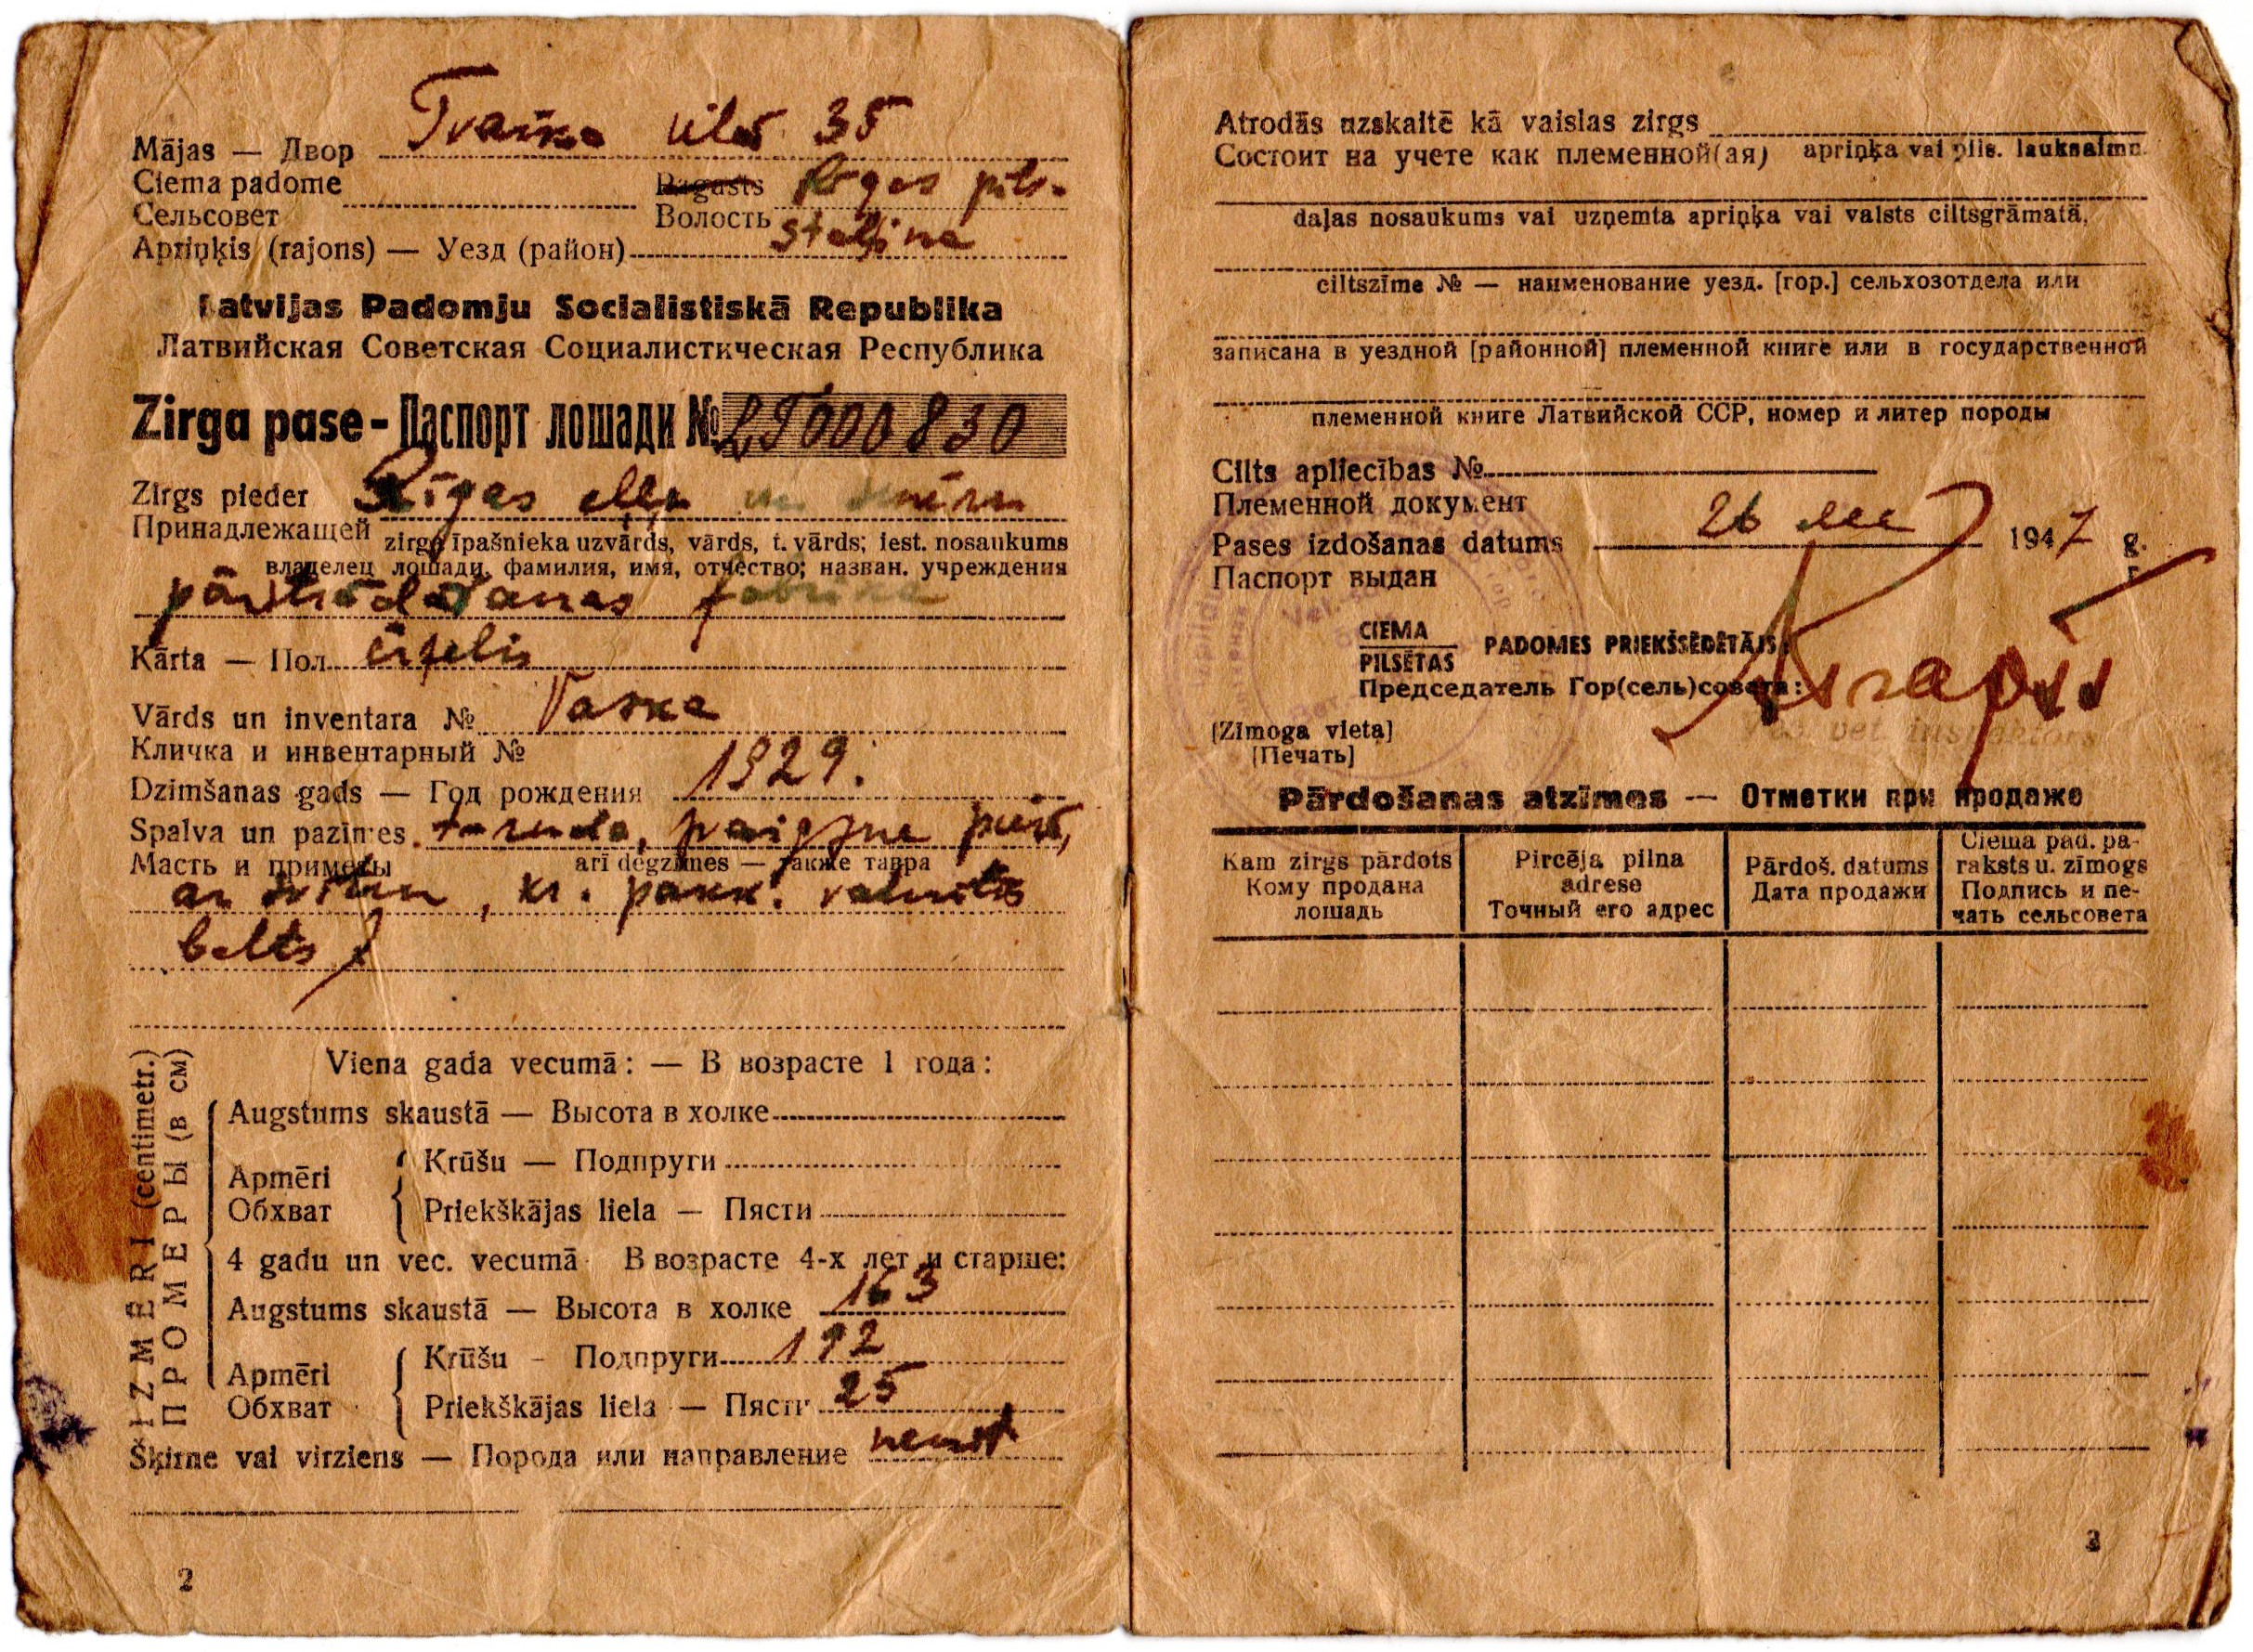 Mājas — Двор Tvaika ielā 35
Ciema padome Pagasts Rīgas pils.
Сельсовет Волость
Apriņķis (rajons) — Уезд (район) Staļina
Latvijas Padomju Socialistiskā Republika
Латвийская Советская Социалистическая Республика
Zirga pase - Паспорт лошади №
Zirgs pieder Rīgas eļļu un
Принадлежащей zirga īpašnieka uzvārds, vārds, t. vārds; iest. nosaukums
владелец лошади, фамилия, имя, отчество; назван. учреждения
pārstrādāšanas fabrika
Kārta — Пол ērzelis
Vārds un inventara № Vaska
Кличка и инвентарный №
Dzimšanas gads — Год рождения 1929.
Spalva un pazīmes
Масть и приметы arī degzīmes — также тавра
ar , kr. pakk.
balts
Viena gada vecumā: — В возрасте 1 года:
IZMĒRI (centimetr.)
ПРОМЕРЫ (в см)
Augstums skaustā — Высота в холке
Apmēri Krūšu — Подпруги
Обхват Priekškājas liela — Пясти
4 gadu un vec. vecumā В возрасте 4-х лет и старше:
Augstums skaustā — Высота в холке 163
Apmēri Krūšu - Подпруги 192
Обхват Priekškājas liela — Пясти 25
Šķirne vai virziens — Порода или направление
2
Atrodās uzskaitē kā vaislas zirgs
Состоит на учете как племенной(ая) apriņķa vai pils. lauksaimn.
daļas nosaukums vai uzņemta apriņķa vai valsts ciltsgrāmatā,
ciltszīme № — наименование уезд. [гор.] сельхозотдела или
записана в уездной [районной] племенной книге или в государственной
племенной книге Латвийской ССР, номер и литер породы
Cilts apliecības №
Племенной документ
Pases izdošanas datums 26 1947 g.
Паспорт выдан г.
CIEMA
PILSĒTAS PADOMES PRIEKŠSĒDĒTĀJS:
Председатель Гор(сель)совета:
vet. inspektors
[Zīmoga vieta]
[Печать]
Pārdošanas atzīmes — Отметки при продаже
Kam zirgs pārdots
Кому продана
лошадь
Pircēja pilna
adrese
Точный его адрес
Pārdoš. datums
Дата продажи
Ciema pad. pa-
raksts u. zīmogs
Подпись и пе-
чать сельсовета
3